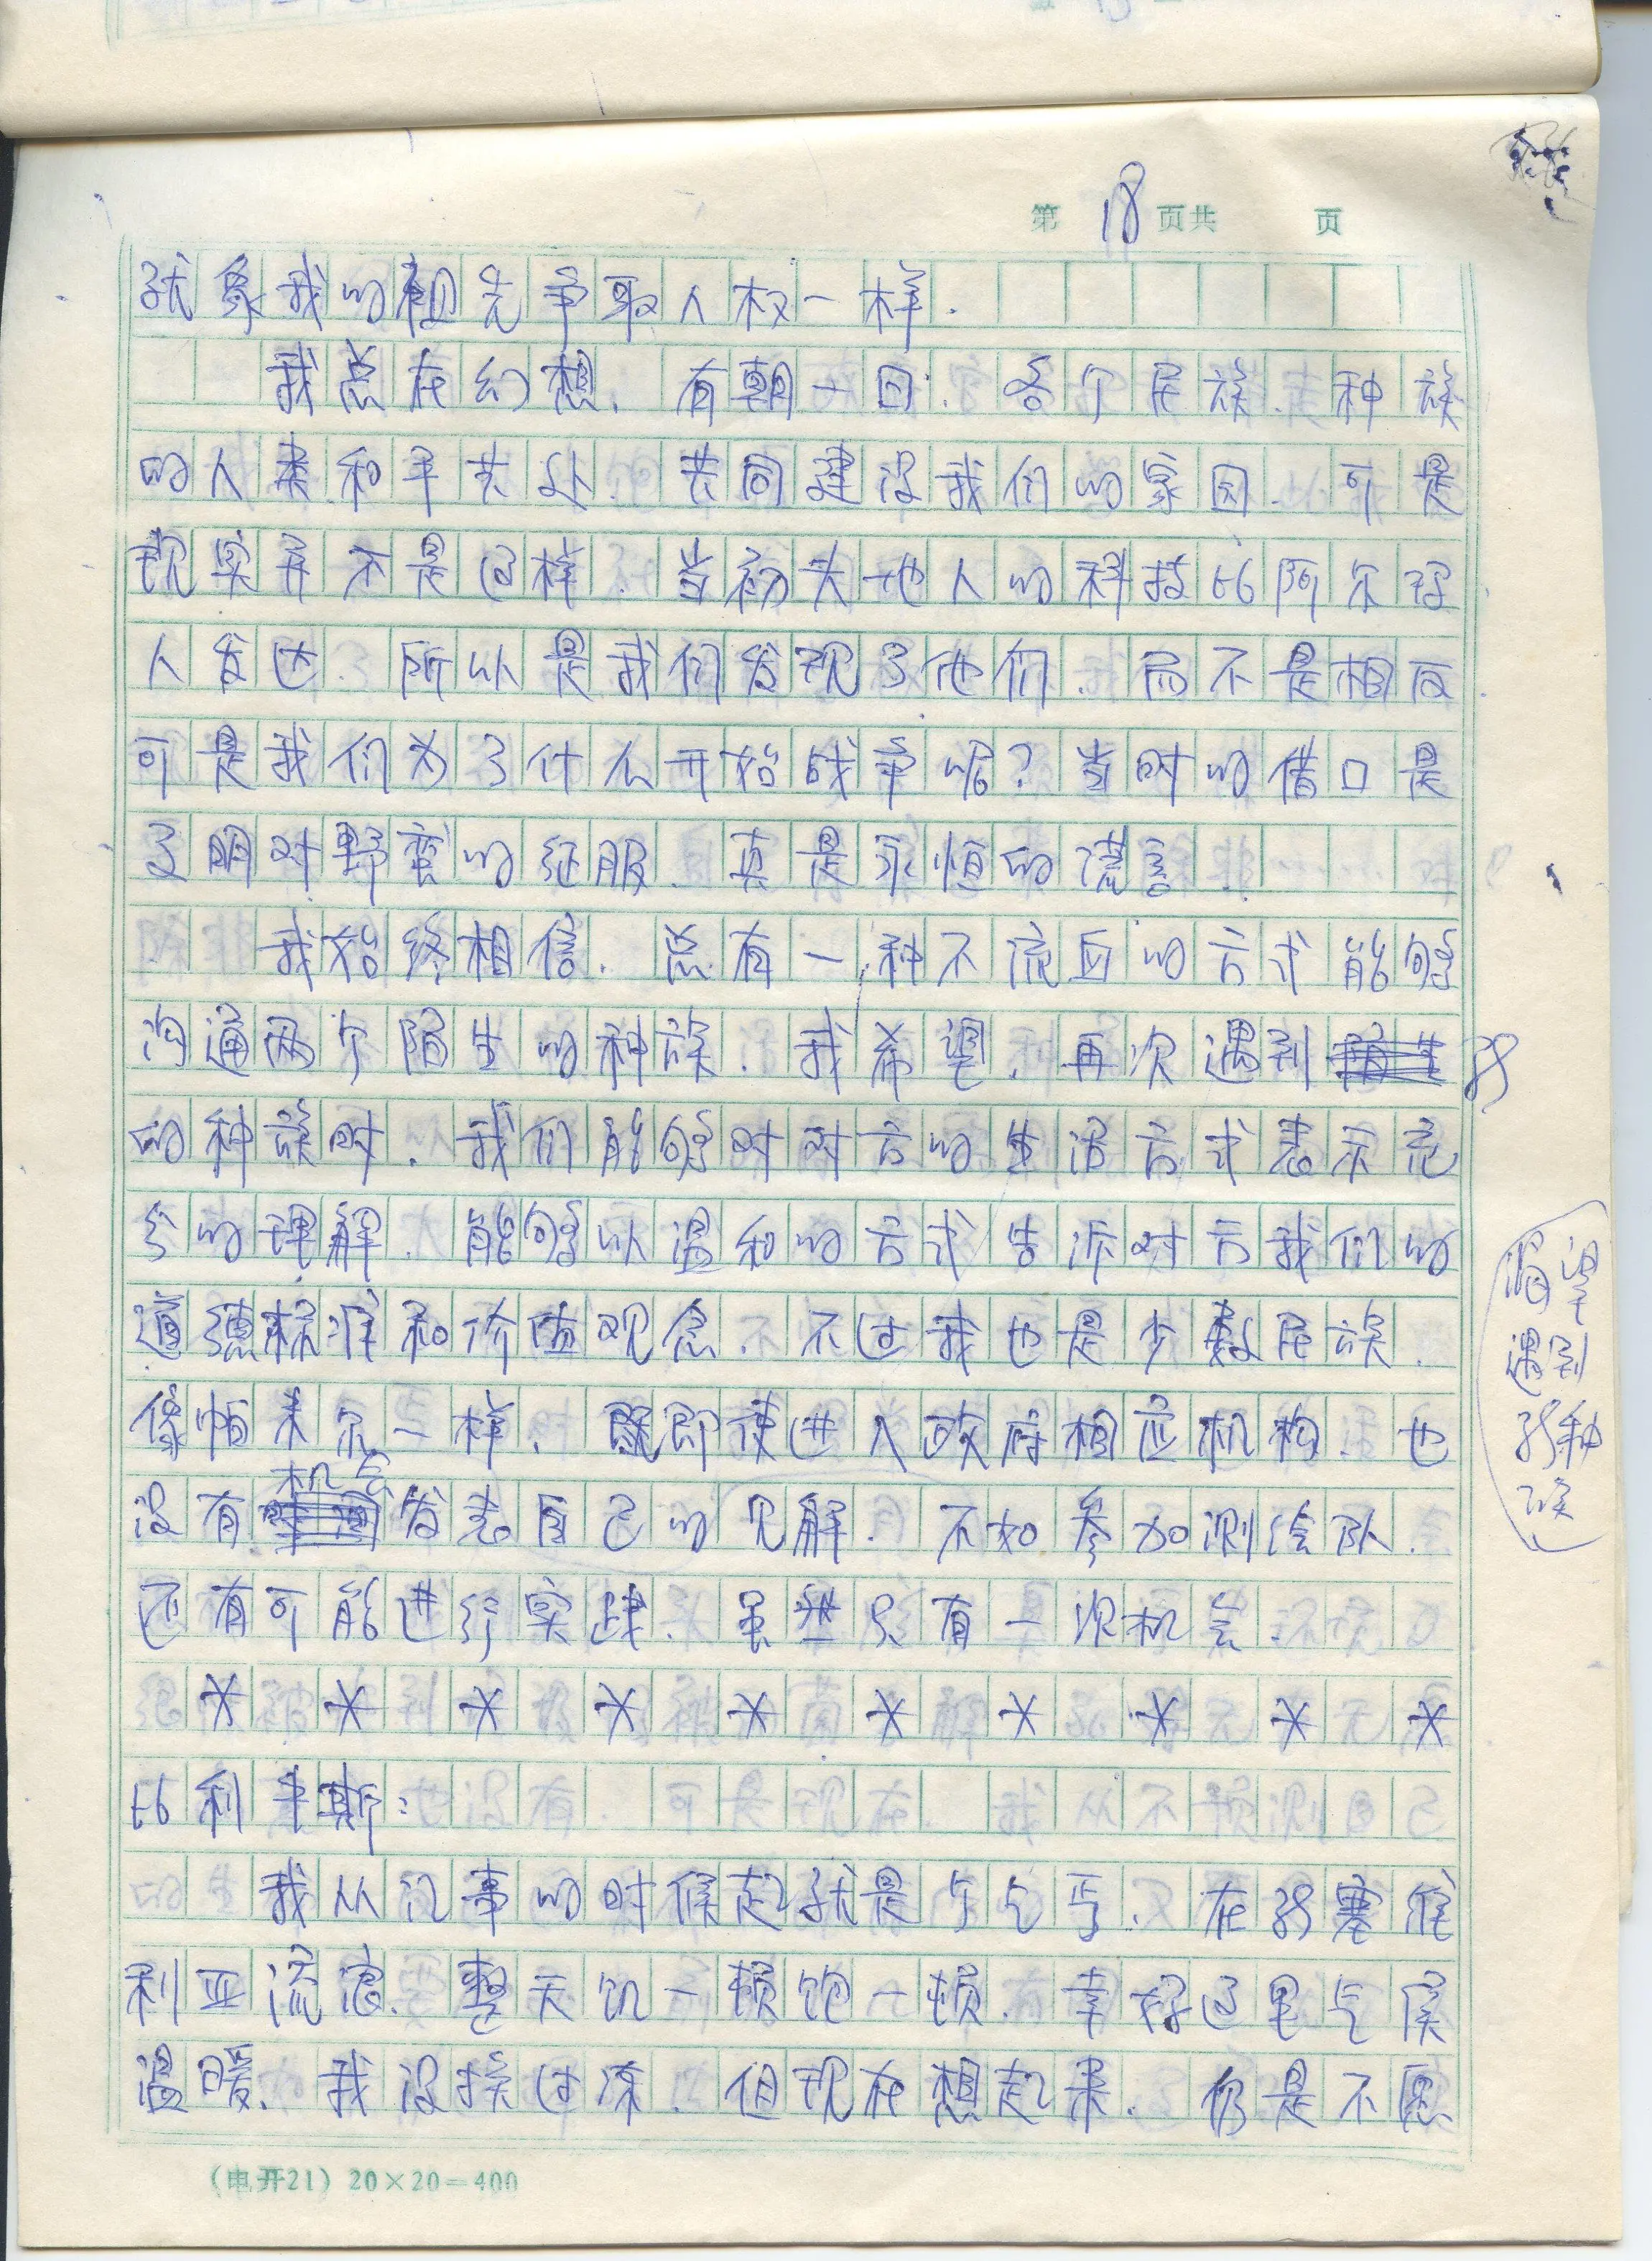 第 18 页共 页
就象我的祖先争取人权一样.
我总在幻想. 有朝一日. 各个民族. 种族
的人类和平共处. 共同建设我们的家园. 可是
现实并不是这样. 当初大地人的科技比阿尔
人发达. 所以是我们发现了他们. 而不是相反
可是我们为了什么开始战争呢? 当时的借口是
文明对野蛮的征服. 真是永恒的谎言.
我始终相信. 总有一种不流血的方式能够
沟通两个陌生的种族. 我希望. 再次遇到
的种族时. 我们能够对对方的生活方式表示充
分的理解. 能够以温和的方式告诉对方我们的
道德标准和价值观念. 不过我也是少数民族.
像帕未尔一样. 既即使进入政府相应机构. 也
没有机会发表自己的见解. 不如参加测绘队.
还有可能进行实践. 虽然只有一次机会.
* * * * * * * * * *
比利平斯:
我从记事的时候起就是个乞丐. 在 塞维
利亚流浪. 整天饥一顿饱一顿. 幸好这里气候
温暖. 我没挨过冻. 但现在想起来. 仍是不愿
渴望
遇到
种
族
(电开21) 20×20=400